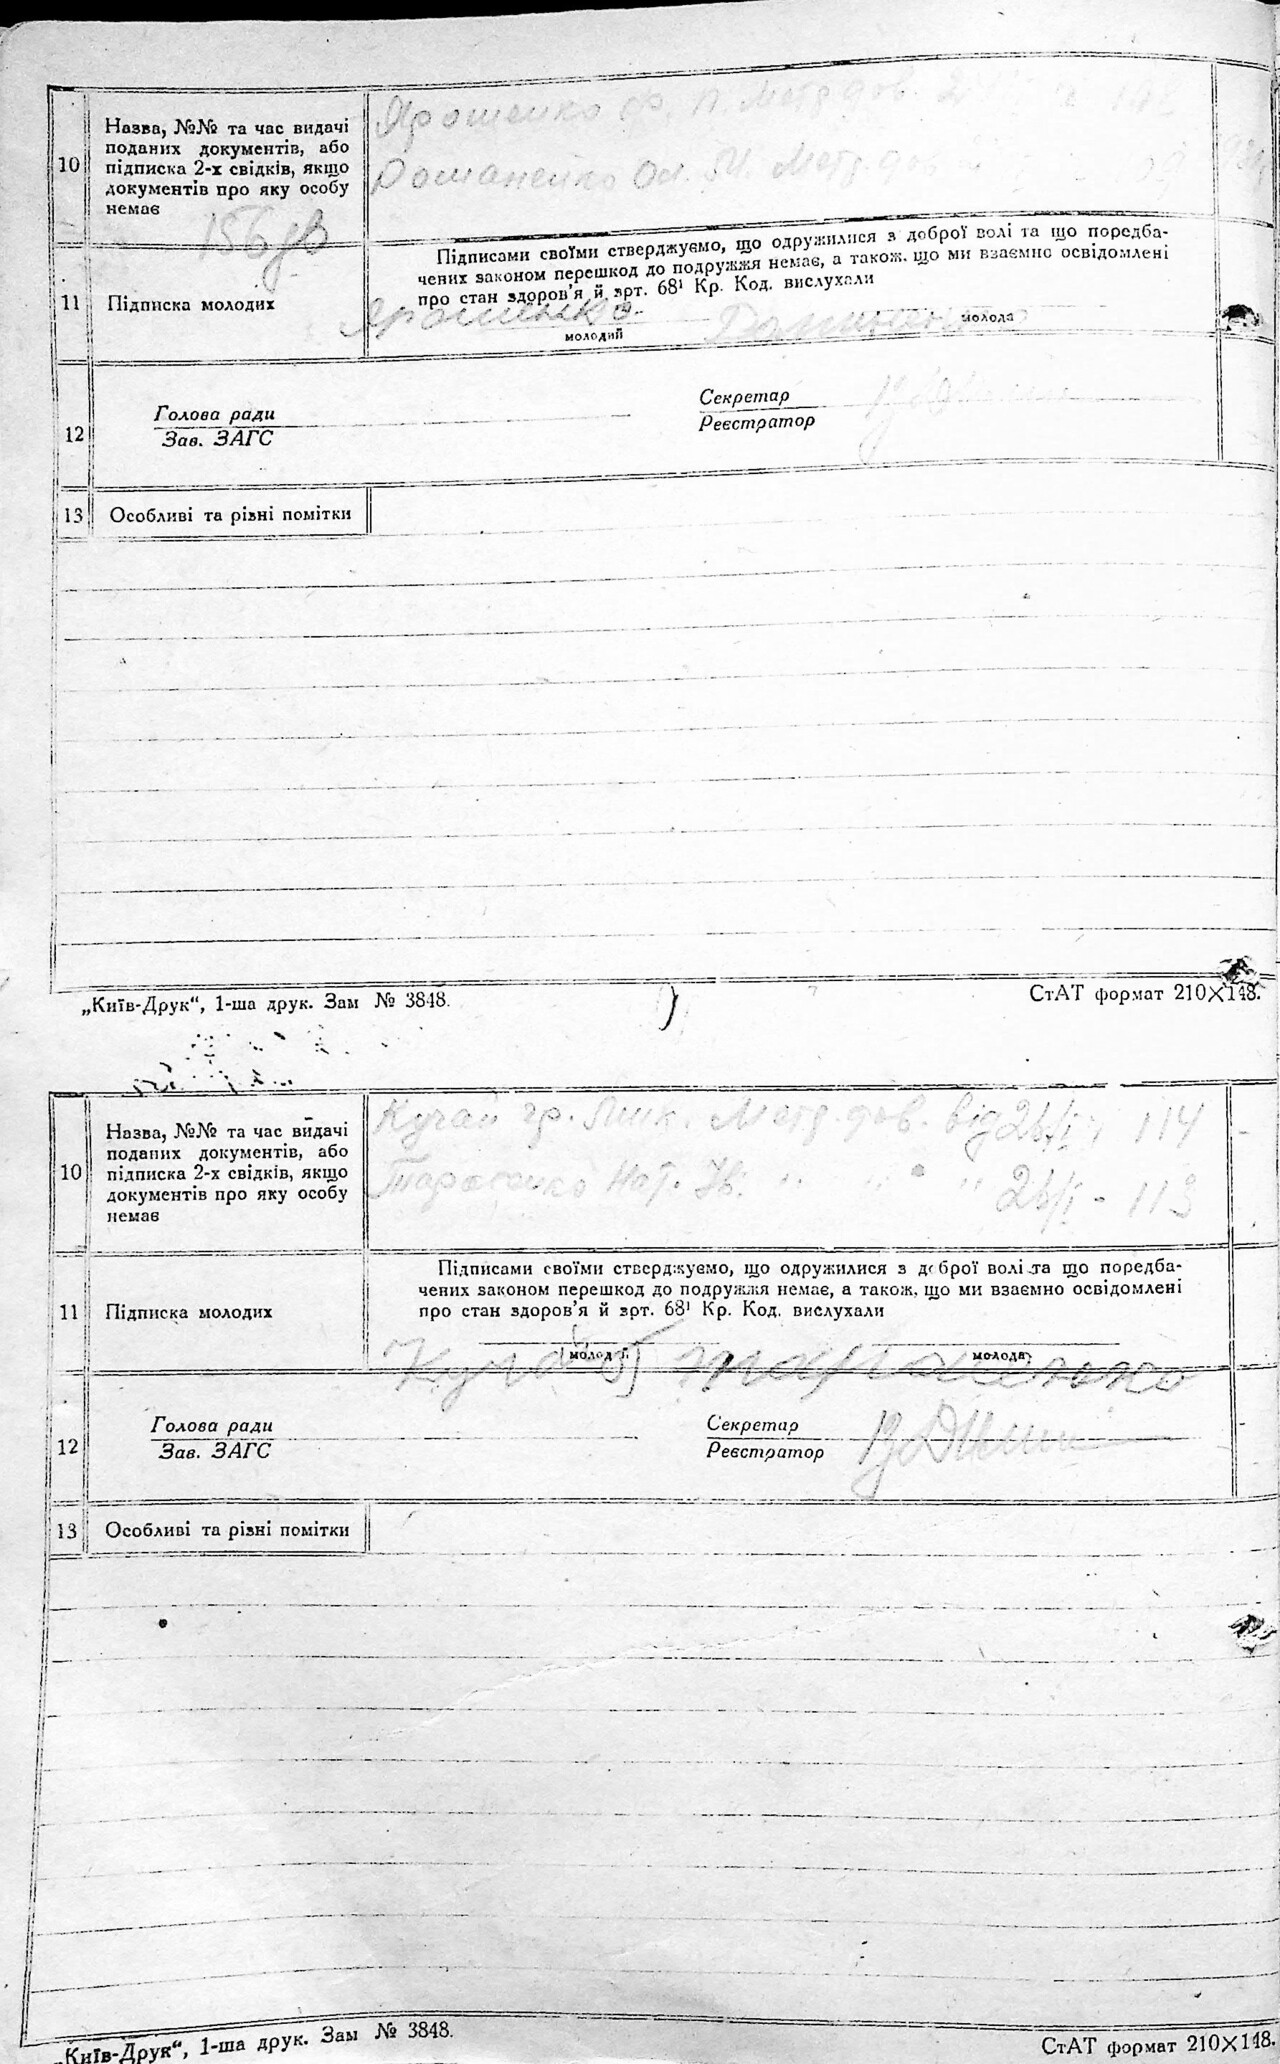 10
Назва, №№ та час видачі
поданих документів, або
підписка 2-х свідків, якщо
документів про яку особу
немає
Ярошенко Ф. П. Метр. дов.
Романенко Ол. М. Метр. дов
156
11
Підписка молодих
Підписами своїми стверджуємо, що одружилися з доброї волі та що поредба-
чених законом перешкод до подружжя немає, а також. що ми взаємно освідомлені
про стан здоров'я й зрт. 68¹ Кр. Код. вислухали
Ярошенко
молодий
молода
12
Голова ради
Зав. ЗАГС
Секретар
Реєстратор
13
Особливі та різні помітки
„Київ-Друк“, 1-ша друк. Зам № 3848.
СтАТ формат 210×148.
10
Назва, №№ та час видачі
поданих документів, або
підписка 2-х свідків, якщо
документів про яку особу
немає
Кучай гр. Мик. Метр. дов. від 26/I 114
Тарасенко Нат. Ів. " " " " 26/I - 113
11
Підписка молодих
Підписами своїми стверджуємо, що одружилися з доброї волі та що поредба-
чених законом перешкод до подружжя немає, а також, що ми взаємно освідомлені
про стан здоров'я й зрт. 68¹ Кр. Код. вислухали
молода
Кучай Тарасенко
12
Голова ради
Зав. ЗАГС
Секретар
Реєстратор
13
Особливі та різні помітки
„Київ-Друк“, 1-ша друк. Зам № 3848.
СтАТ формат 210×148.